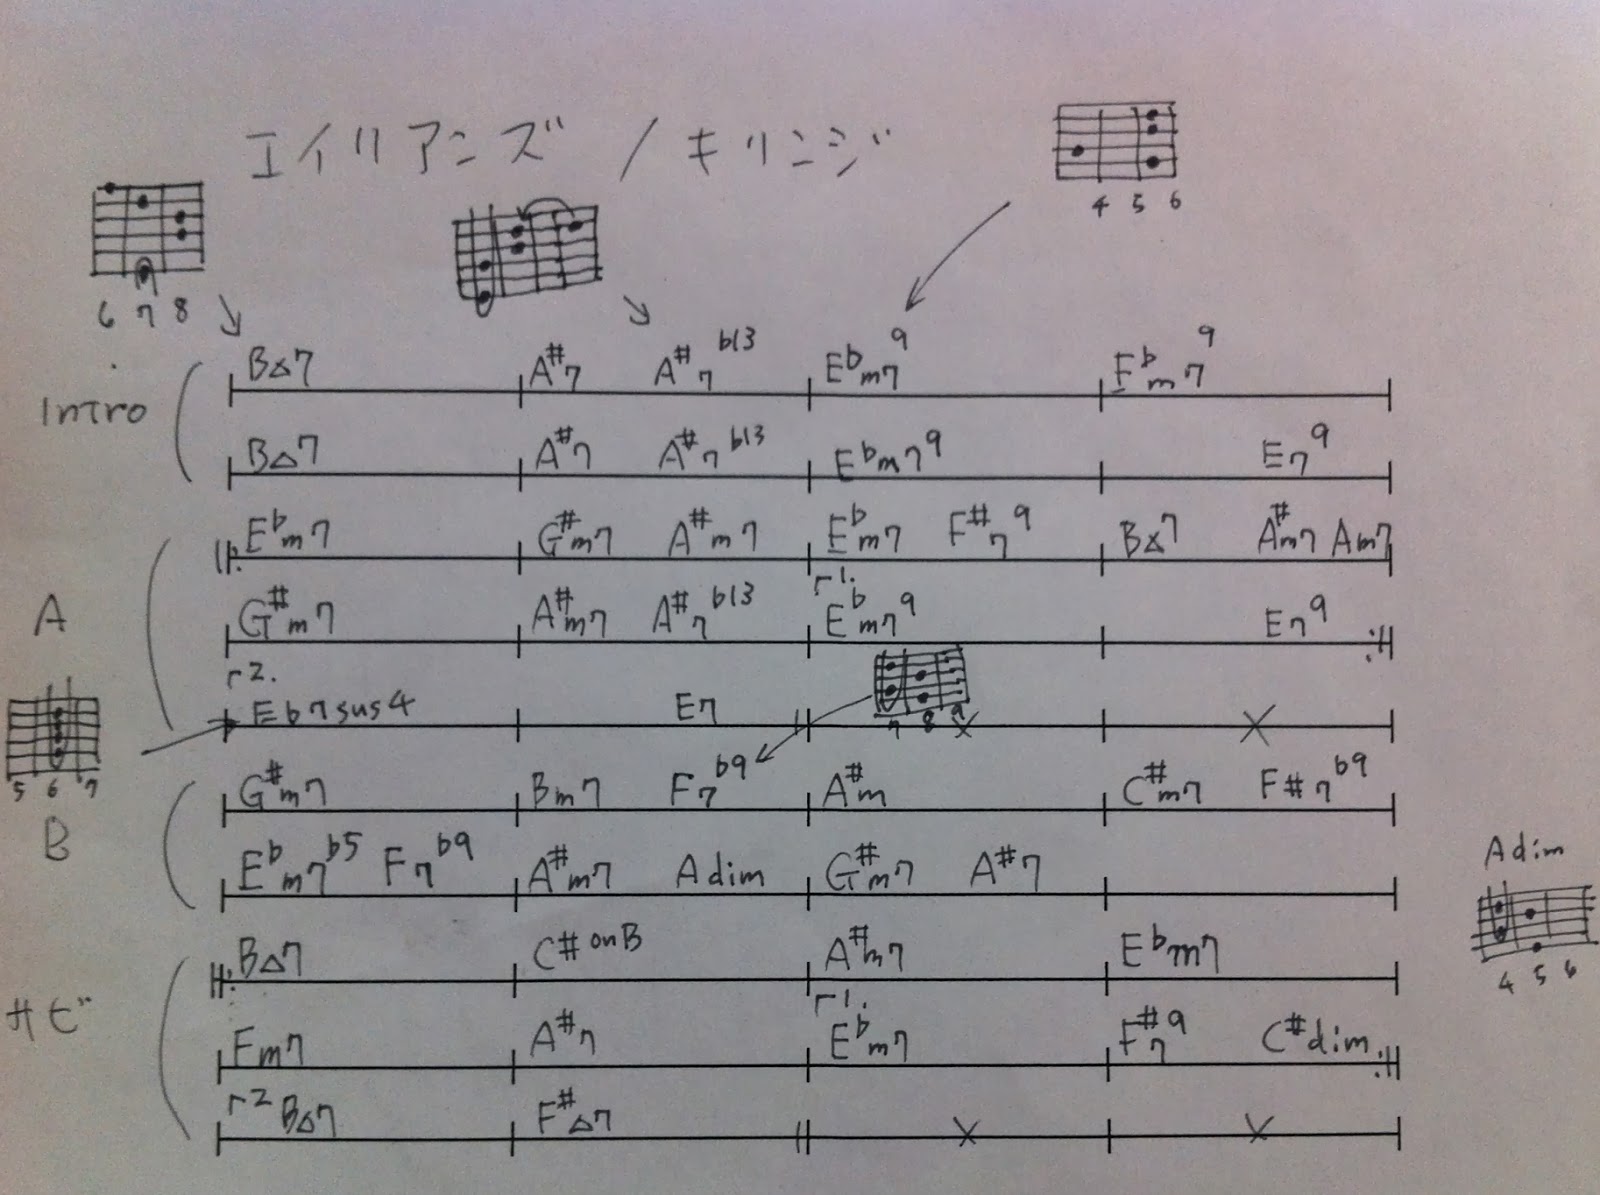 エイリアンズ / キリンジ
4 5 6
6 7 8
Intro
B△7 A#7 A#7b13 Ebm79 Ebm79
B△7 A#7 A#7b13 Ebm79 E79
A
Ebm7 G#m7 A#m7 Ebm7 F#79 B△7 A#m7 Am7
1.
G#m7 A#m7 A#7b13 Ebm79 E79
2.
Eb7sus4 E7
7 8 9
5 6 7
B
G#m7 Bm7 F7b9 A#m C#m7 F#7b9
Ebm7b5 F7b9 A#m7 Adim G#m7 A#7
Adim
4 5 6
サビ
B△7 C#onB A#m7 Ebm7
1.
Fm7 A#7 Ebm7 F#79 C#dim
2 B△7 F#△7